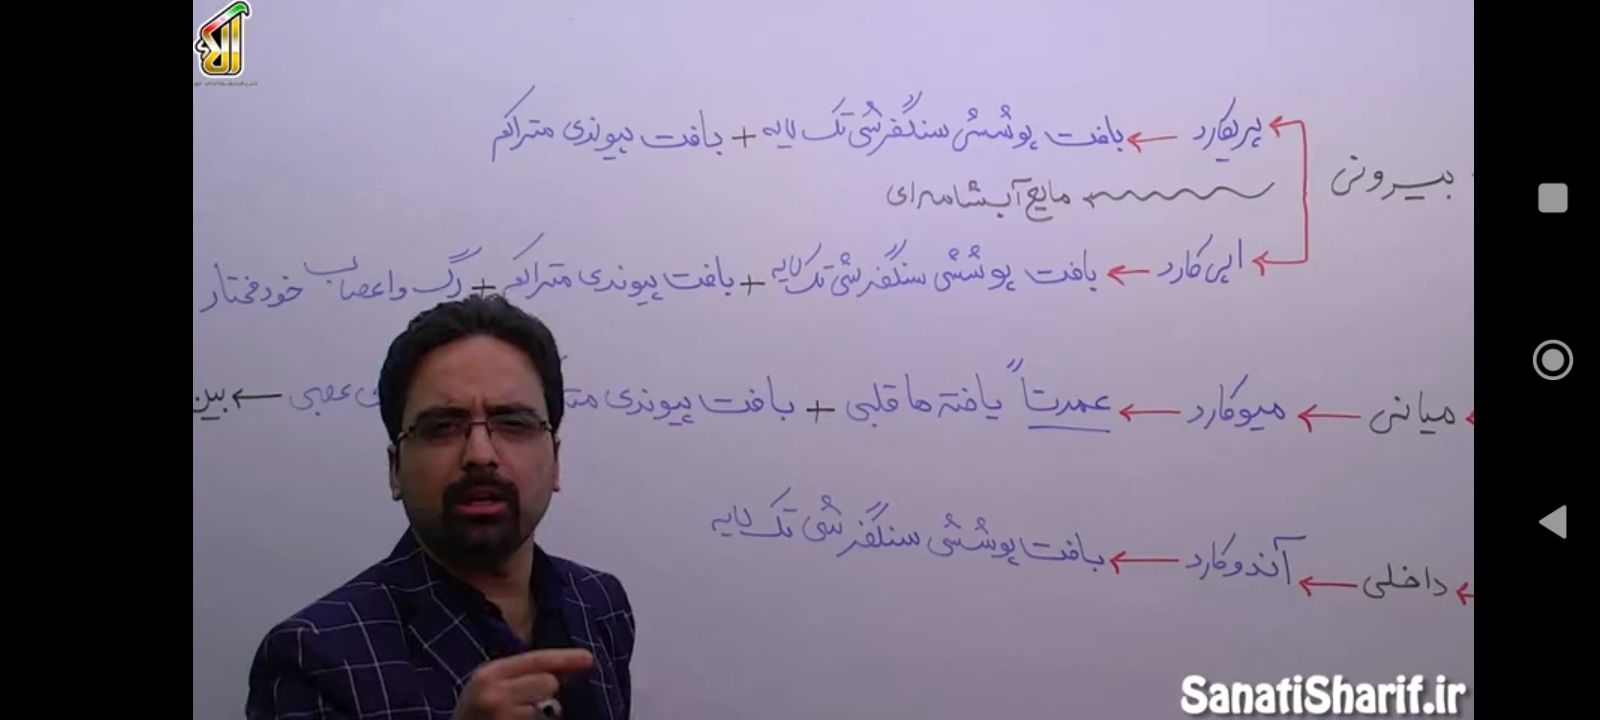 آلاء
بیرونی
پریکارد ← بافت پوششی سنگفرشی تک لایه + بافت پیوندی متراکم
مایع آبشامه ای
اپی کارد ← بافت پوششی سنگفرشی تک لایه + بافت پیوندی متراکم + رگ و اعصاب خودمختار
میانی ← میوکارد ← عمدتاً یافته ها قلبی + بافت پیوندی عصبی ← بین
داخلی ← آندوکارد ← بافت پوششی سنگفرشی تک لایه
SanatiSharif.ir